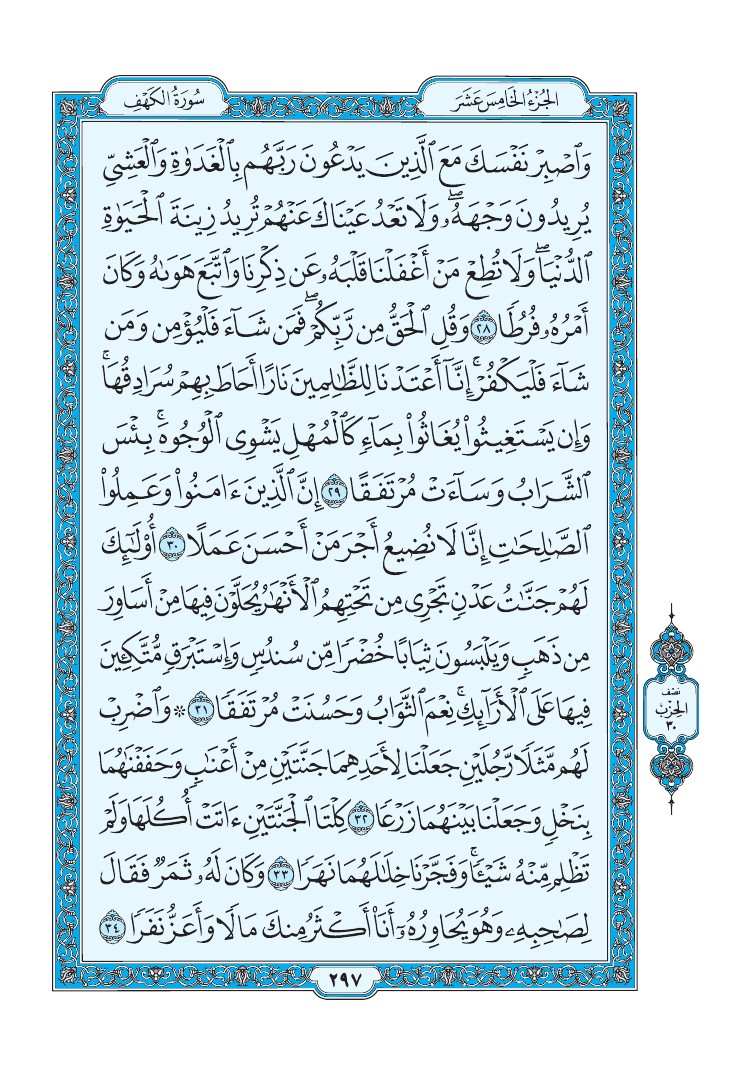 الجُزْءُ الخَامِسَ عَشَرَ
سُورَةُ الكَهْفِ
وَٱصْبِرْ نَفْسَكَ مَعَ ٱلَّذِينَ يَدْعُونَ رَبَّهُم بِٱلْغَدَوٰةِ وَٱلْعَشِىِّ
يُرِيدُونَ وَجْهَهُۥۖ وَلَا تَعْدُ عَيْنَاكَ عَنْهُمْ تُرِيدُ زِينَةَ ٱلْحَيَوٰةِ
ٱلدُّنْيَاۖ وَلَا تُطِعْ مَنْ أَغْفَلْنَا قَلْبَهُۥ عَن ذِكْرِنَا وَٱتَّبَعَ هَوَىٰهُ وَكَانَ
أَمْرُهُۥ فُرُطًا ٢٨ وَقُلِ ٱلْحَقُّ مِن رَّبِّكُمْۖ فَمَن شَآءَ فَلْيُؤْمِن وَمَن
شَآءَ فَلْيَكْفُرْۚ إِنَّآ أَعْتَدْنَا لِلظَّٰلِمِينَ نَارًا أَحَاطَ بِهِمْ سُرَادِقُهَاۚ
وَإِن يَسْتَغِيثُوا۟ يُغَاثُوا۟ بِمَآءٍ كَٱلْمُهْلِ يَشْوِى ٱلْوُجُوهَۚ بِئْسَ
ٱلشَّرَابُ وَسَآءَتْ مُرْتَفَقًا ٢٩ إِنَّ ٱلَّذِينَ ءَامَنُوا۟ وَعَمِلُوا۟
ٱلصَّٰلِحَٰتِ إِنَّا لَا نُضِيعُ أَجْرَ مَنْ أَحْسَنَ عَمَلًا ٣٠ أُو۟لَٰٓئِكَ
لَهُمْ جَنَّٰتُ عَدْنٍ تَجْرِى مِن تَحْتِهِمُ ٱلْأَنْهَٰرُ يُحَلَّوْنَ فِيهَا مِنْ أَسَاوِرَ
مِن ذَهَبٍ وَيَلْبَسُونَ ثِيَابًا خُضْرًا مِّن سُندُسٍ وَإِسْتَبْرَقٍ مُّتَّكِـِٔينَ
فِيهَا عَلَى ٱلْأَرَآئِكِۚ نِعْمَ ٱلثَّوَابُ وَحَسُنَتْ مُرْتَفَقًا ٣١ ۞ وَٱضْرِبْ
لَهُم مَّثَلًا رَّجُلَيْنِ جَعَلْنَا لِأَحَدِهِمَا جَنَّتَيْنِ مِنْ أَعْنَٰبٍ وَحَفَفْنَٰهُمَا
بِنَخْلٍ وَجَعَلْنَا بَيْنَهُمَا زَرْعًا ٣٢ كِلْتَا ٱلْجَنَّتَيْنِ ءَاتَتْ أُكُلَهَا وَلَمْ
تَظْلِم مِّنْهُ شَيْـًٔاۚ وَفَجَّرْنَا خِلَٰلَهُمَا نَهَرًا ٣٣ وَكَانَ لَهُۥ ثَمَرٌ فَقَالَ
لِصَٰحِبِهِۦ وَهُوَ يُحَاوِرُهُۥٓ أَنَا۠ أَكْثَرُ مِنكَ مَالًا وَأَعَزُّ نَفَرًا ٣٤
نصْف
الحِزْبِ
٣٠
٢٩٧